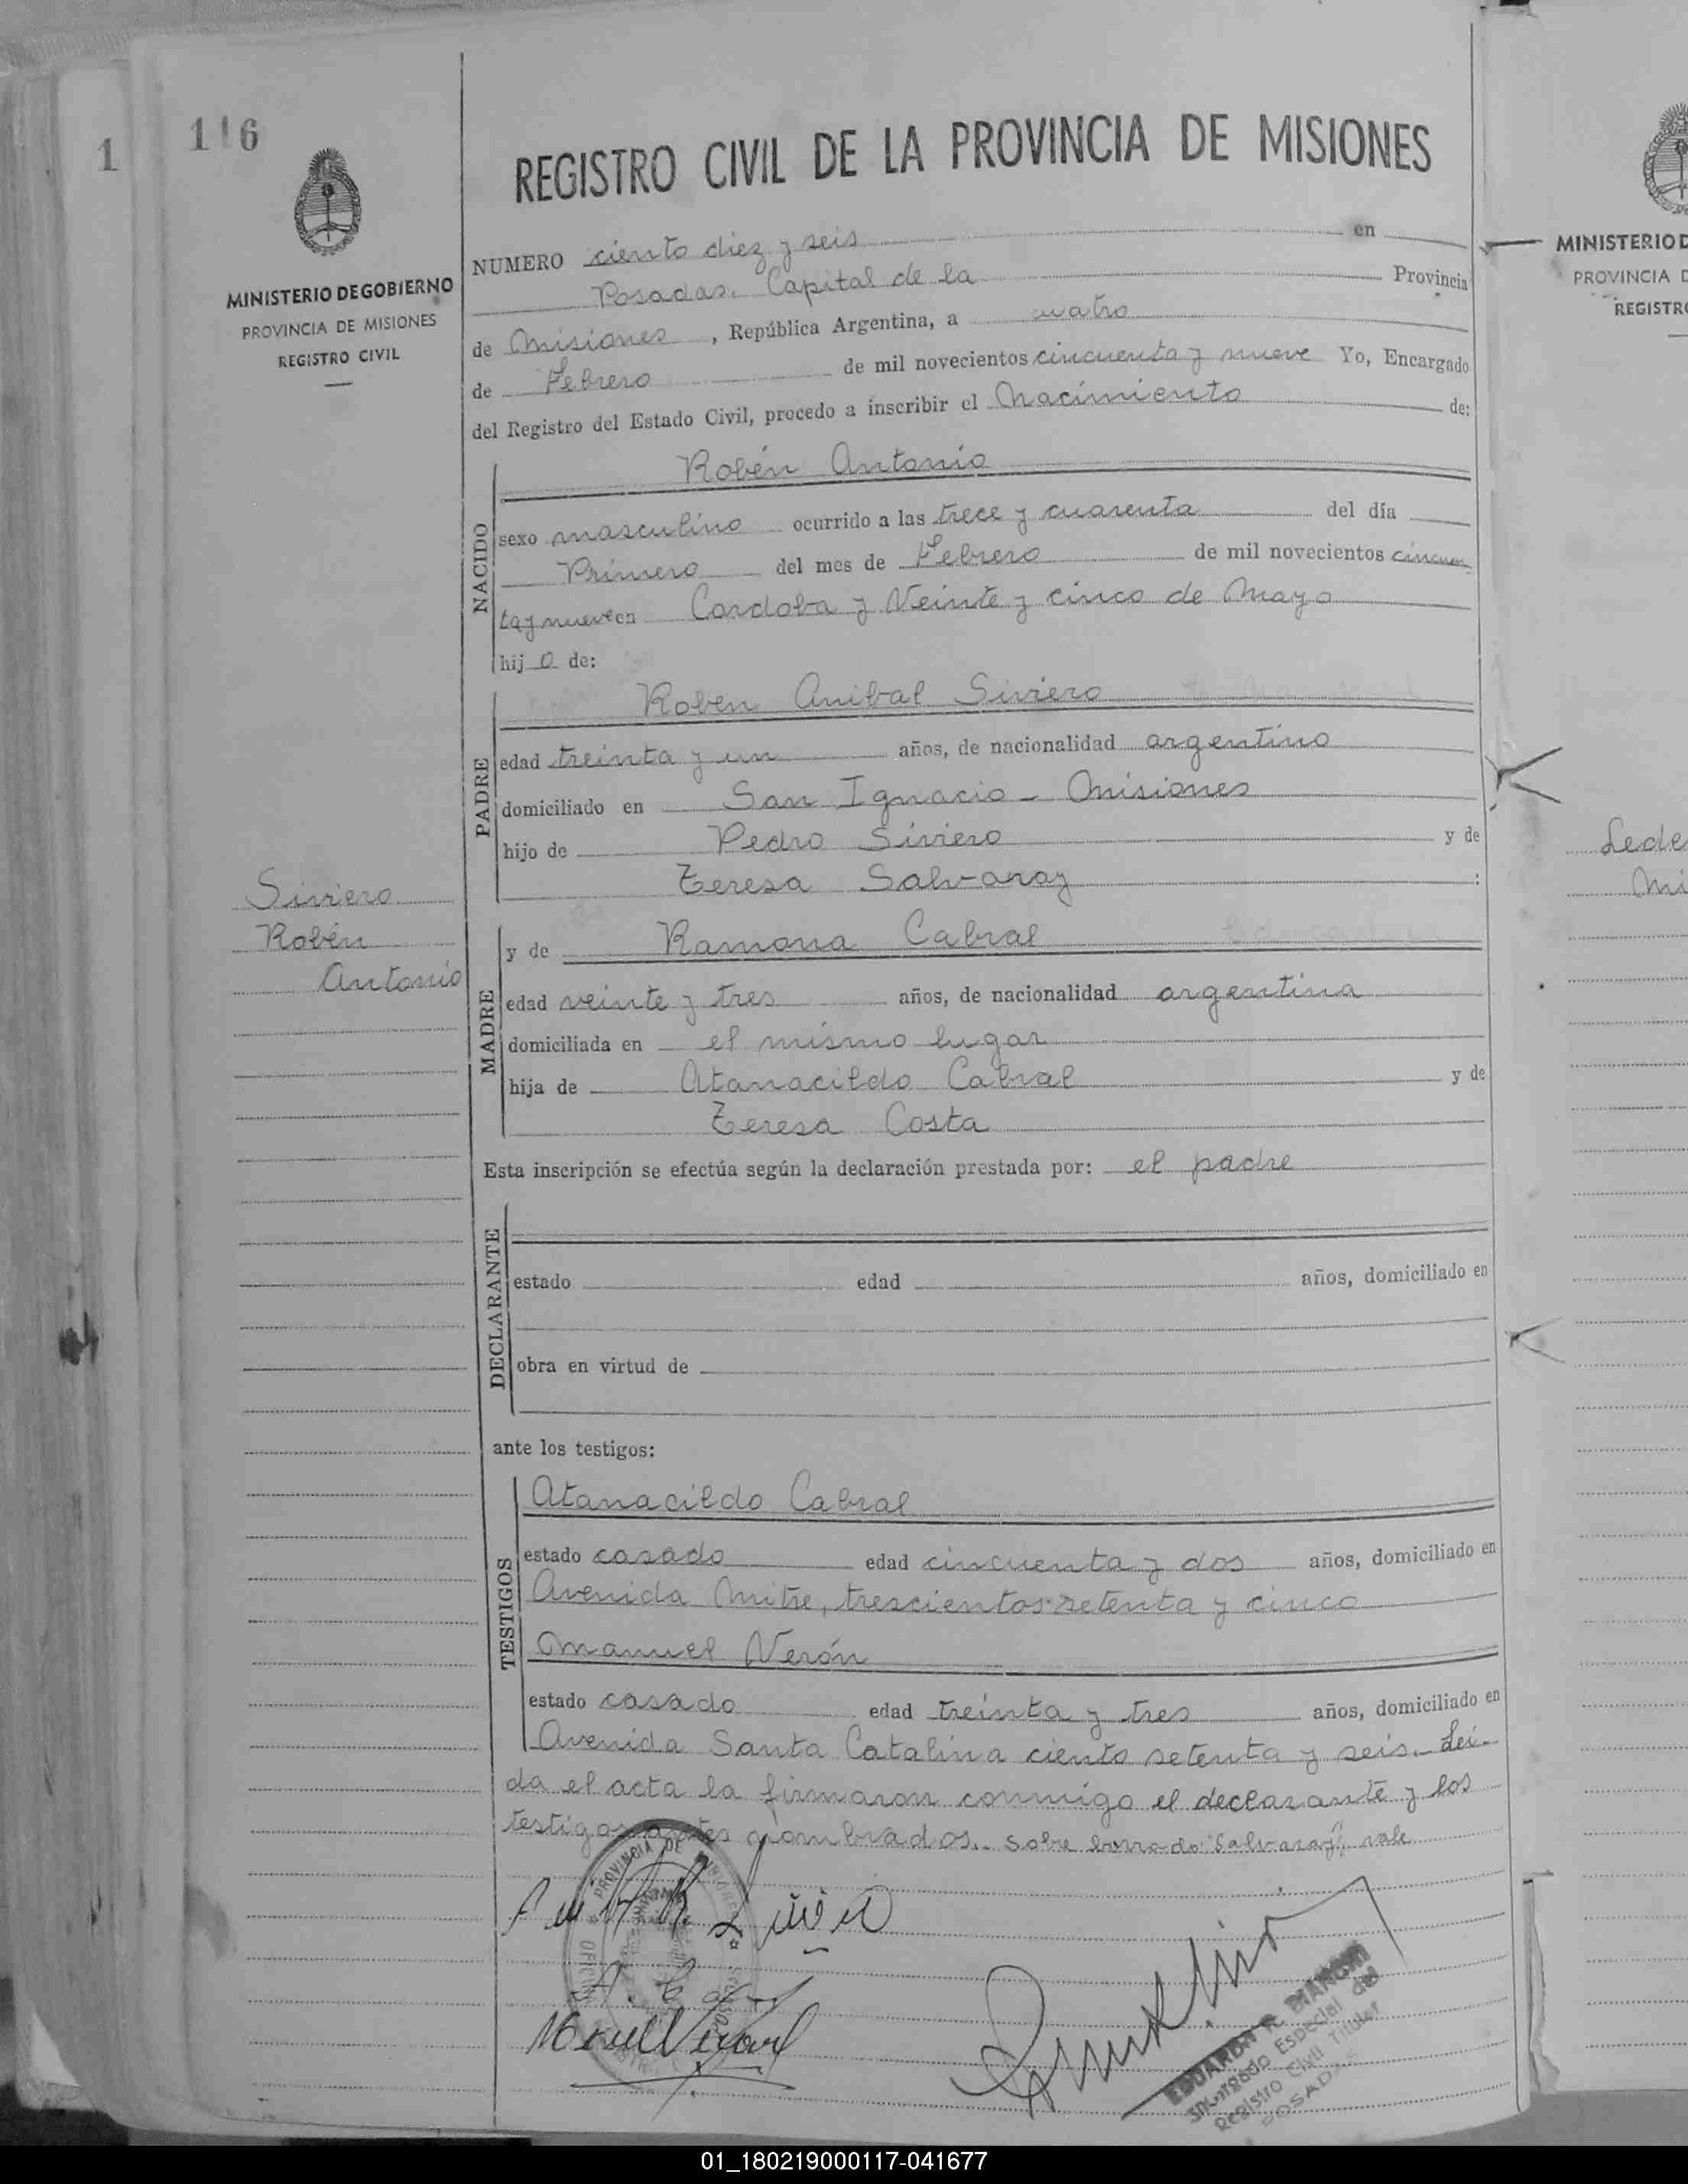 1
116
MINISTERIO DE GOBIERNO
PROVINCIA DE MISIONES
REGISTRO CIVIL
Siviero
Robén
Antonio
REGISTRO CIVIL DE LA PROVINCIA DE MISIONES
NUMERO ciento diez y seis en
Posadas. Capital de la Provincia
de Misiones, República Argentina, a cuatro
de Febrero de mil novecientos cincuenta y nueve Yo, Encargado
del Registro del Estado Civil, procedo a inscribir el Nacimiento de:
NACIDO
Robén Antonio
sexo masculino ocurrido a las trece y cuarenta del día
Primero del mes de Febrero de mil novecientos cincuen
ta y nueve en Cordoba y Veinte y cinco de Mayo
hijo de:
PADRE
Roben Anibal Siviero
edad treinta y un años, de nacionalidad argentino
domiciliado en San Ignacio - Misiones
hijo de Pedro Siviero y de
Teresa Salvaray :
MADRE
y de Ramona Cabral
edad veinte y tres años, de nacionalidad argentina
domiciliada en el mismo lugar
hija de Atanacildo Cabral y de
Teresa Costa
Esta inscripción se efectúa según la declaración prestada por: el padre
DECLARANTE
estado edad años, domiciliado en
obra en virtud de
ante los testigos:
TESTIGOS
Atanacildo Cabral
estado casado edad cincuenta y dos años, domiciliado en
Avenida Mitre, trescientos setenta y cinco
Manuel Verón
estado casado edad treinta y tres años, domiciliado en
Avenida Santa Catalina ciento setenta y seis. Lei-
da el acta la firmaron conmigo el declarante y los
testigos antes nombrados. Sobre borrado "Salvaray" vale
PROVINCIA DE
EDUARDO R.
Encargado Especial del
Registro Civil Titular
POSADAS
MINISTERIO D
PROVINCIA D
REGISTR
Lede
Mi
01_180219000117-041677